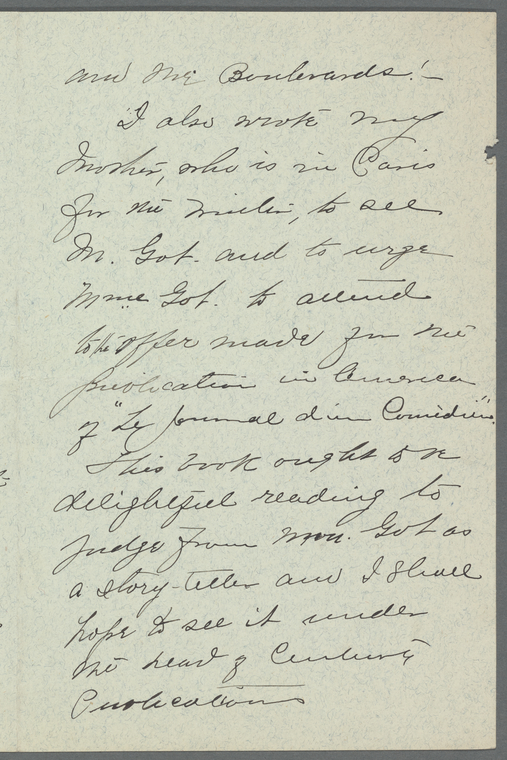 and the Boulevards! —
I also wrote my
Mother, who is in Paris
for the winter, to see
M. Got. and to urge
Mme Got. to attend
to the offer made for the
publication in America
of "Le Journal d'un Comédien".
This book ought to be
delightful reading to
judge from Mon. Got as
a story-teller and I shall
hope to see it under
the head of Century
Publications